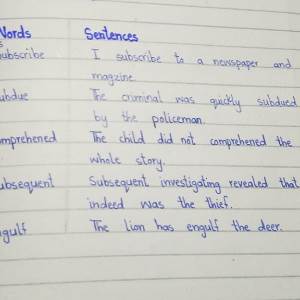 Words Sentences
subscribe I subscribe to a newspaper and
magzine
ubdue The criminal was quickly subdued
by the policeman.
omprehened The child did not comprehened the
whole story.
ubsequent Subsequent investigating revealed that
indeed was the thief.
ngulf The Lion has engulf the deer.